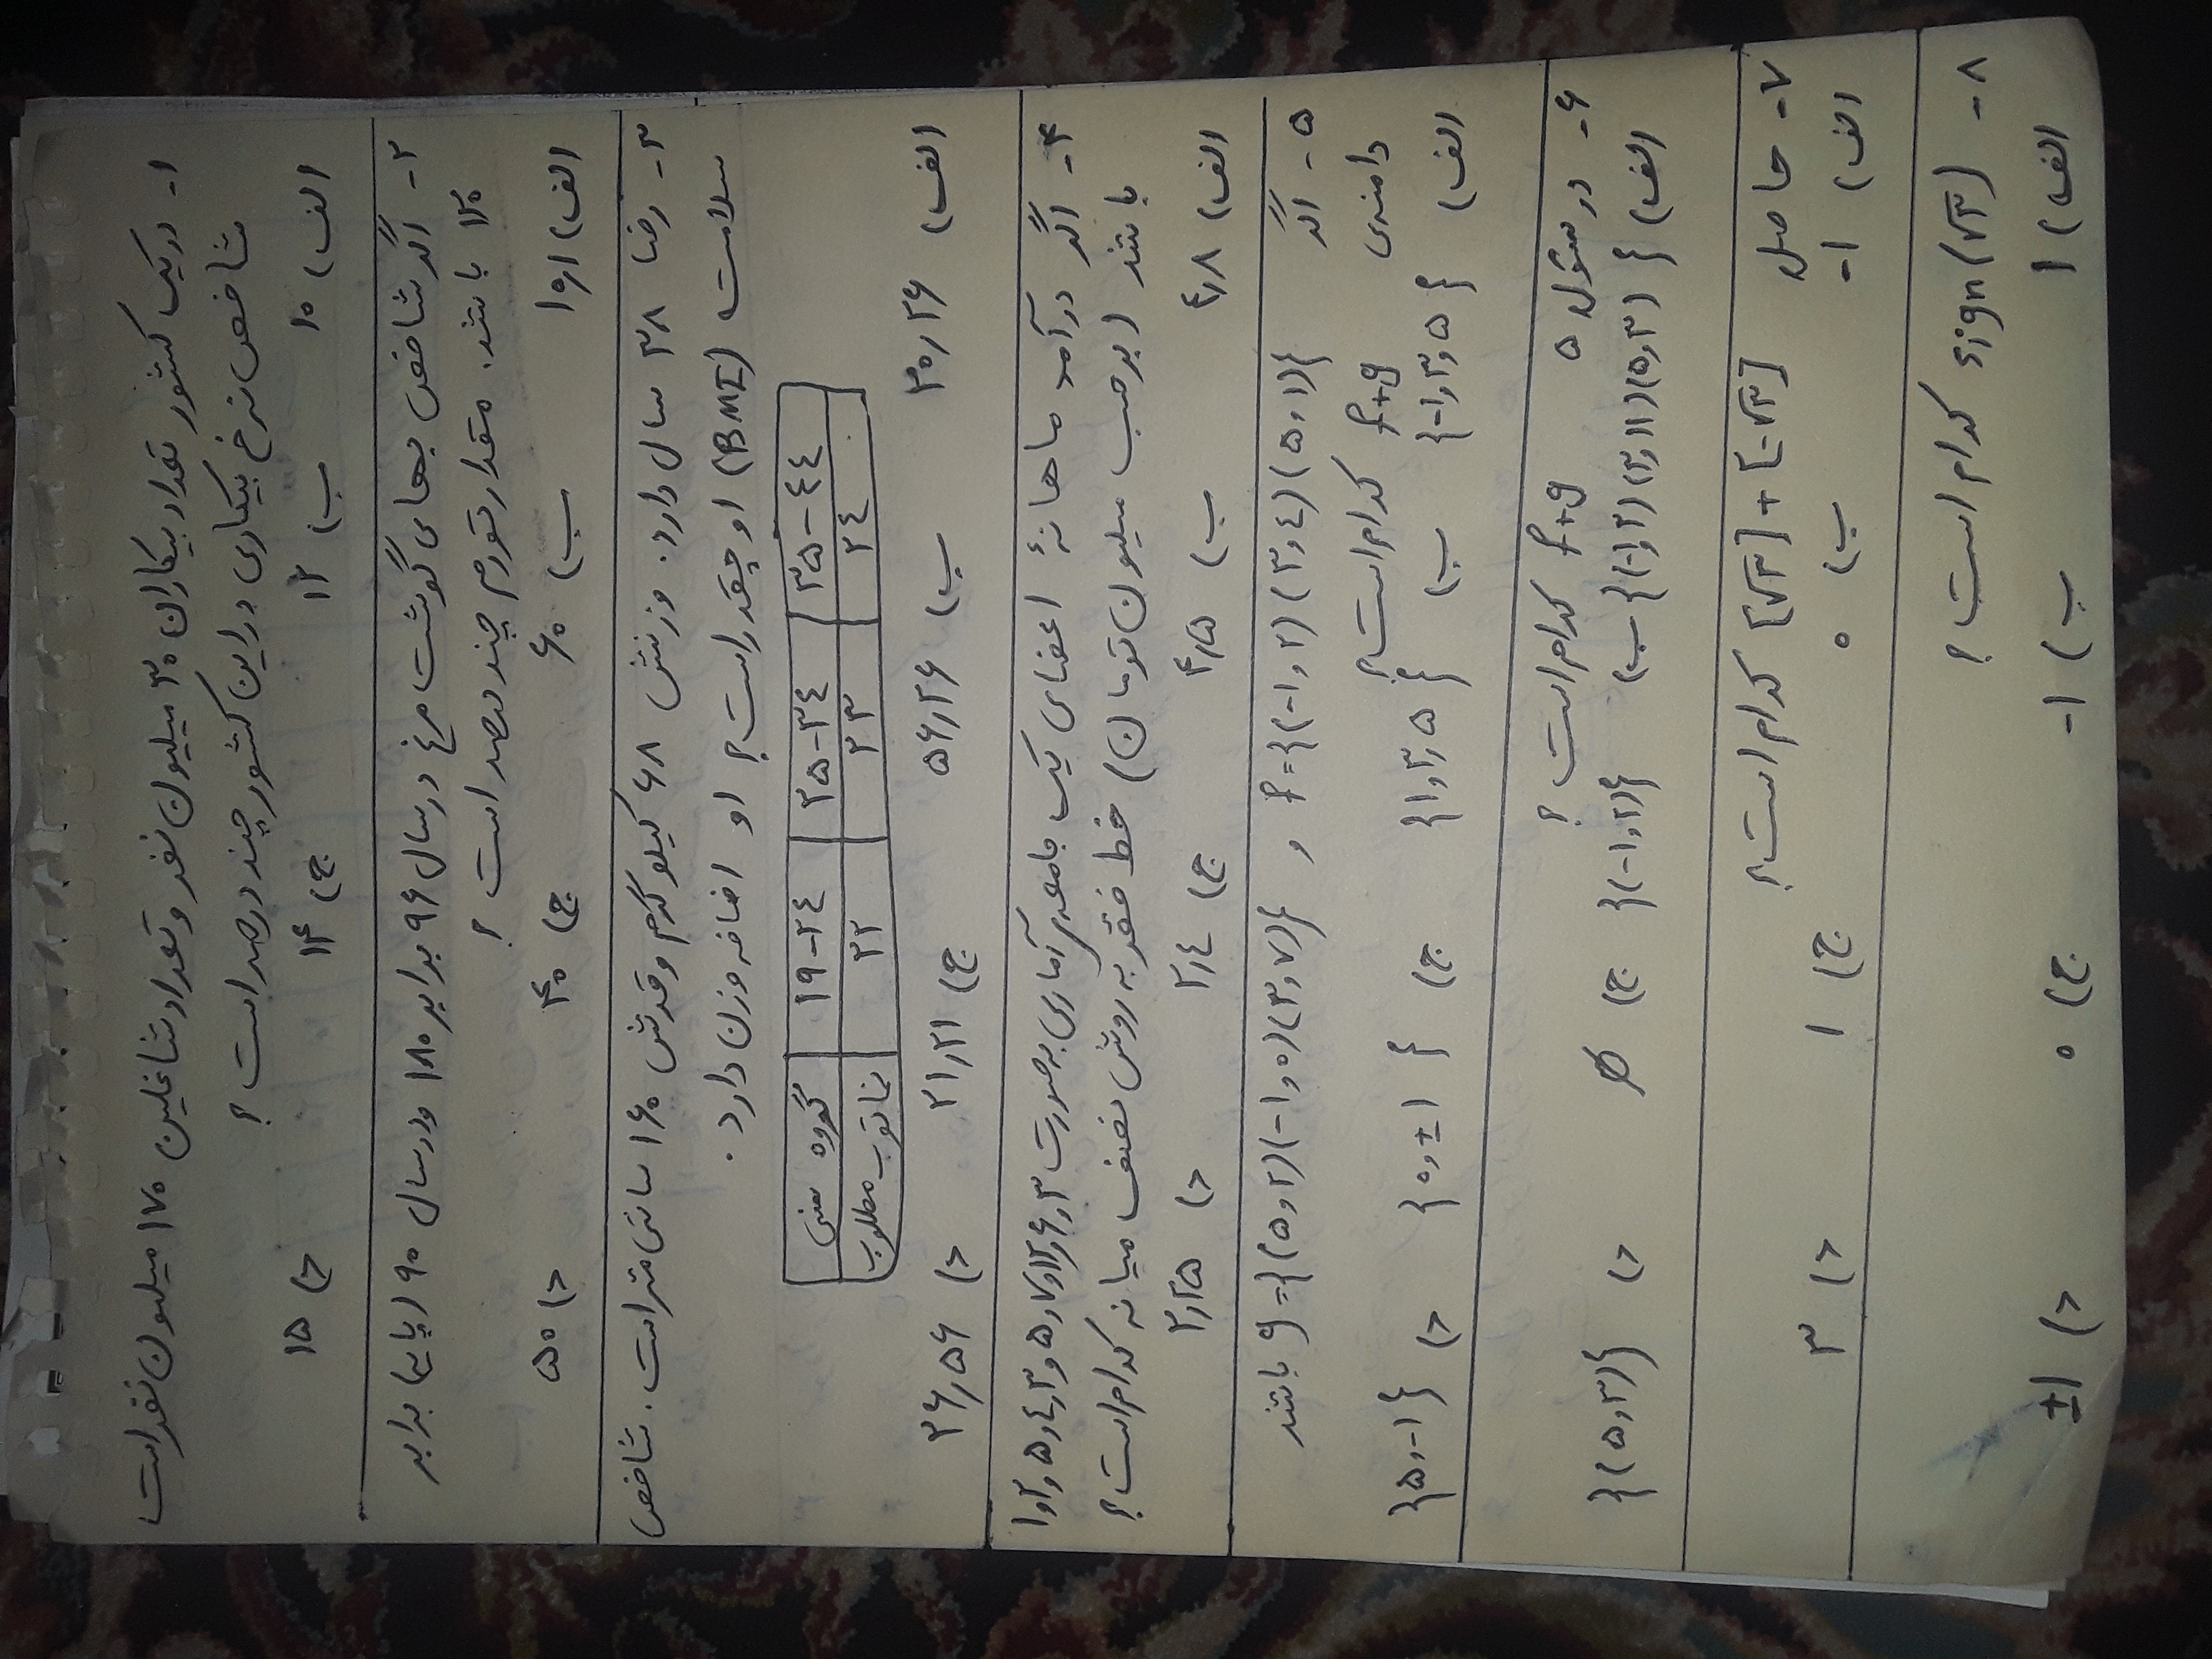 ۱- در یک کشور تعداد بیکاران ۳۰ میلیون نفر و تعداد شاغلین ۱۷۰ میلیون نفر است
شاخص نرخ بیکاری در این کشور چند درصد است؟
الف) ۱۰ ب) ۱۲ ج) ۱۴ د) ۱۵
۲- اگر شاخص بهای گوشت مرغ در سال ۹۶ برابر ۱۸۰ و در سال ۹۰ (پایه) برابر
۱۲۰ باشد. مقدار تورم چند درصد است؟
الف) ۱۰٫۱ ب) ۶۰ ج) ۴۰ د) ۵۰
۳- رضا ۳۸ سال دارد. وزنش ۶۸ کیلوگرم و قدش ۱۶۰ سانتی متر است. شاخص
سلامت (BMI) او چقدر است؟ او اضافه وزن دارد.
گروه سنی ۱۹-۲٤ ۲۵-۳٤ ۳۵-٤٤
نماتوب مطلوب ۲۲ ۲۳ ۲٤
الف) ۳۰٫۲۶ ب) ۵۶٫۲۶ ج) ۲۱٫۲۱ د) ۲۶٫۵۶
۴- اگر درآمد ماهانهٔ اعضای یک جامعه‌ی آماری به صورت ۱و۲و۵و٤و۳و۵و۷و۱۲و۶و۳
باشد (برحسب میلیون تومان) خط فقر به روش نصف میانه کدام است؟
الف) ٤٫۸ ب) ۴٫۵ ج) ۲٫٤ د) ۲٫۲۵
۵- اگر f={(-۱,۲)(۳,٤)(۵,۱)} و g={(۵,۲)(-۱,۰)(۳,۷)} باشند
دامنه‌ی f+g کدام است؟
الف) {-۱,۳,۵} ب) {۱,۳,۵} ج) {۰,±۱} د) {۵,-۱}
۶- در سئوال ۵ f+g کدام است؟
الف) {(-۱,۲)(۳,۱۱)(۵,۳)} ب) {(-۱,۲)} ج) ∅ د) {(۵,۳)}
۷- حاصل [√۳]+[-√۳] کدام است؟
الف) -۱ ب) ۰ ج) ۱ د) ۳
۸- sign(√۳) کدام است؟
الف) ۱ ب) -۱ ج) ۰ د) ±۱